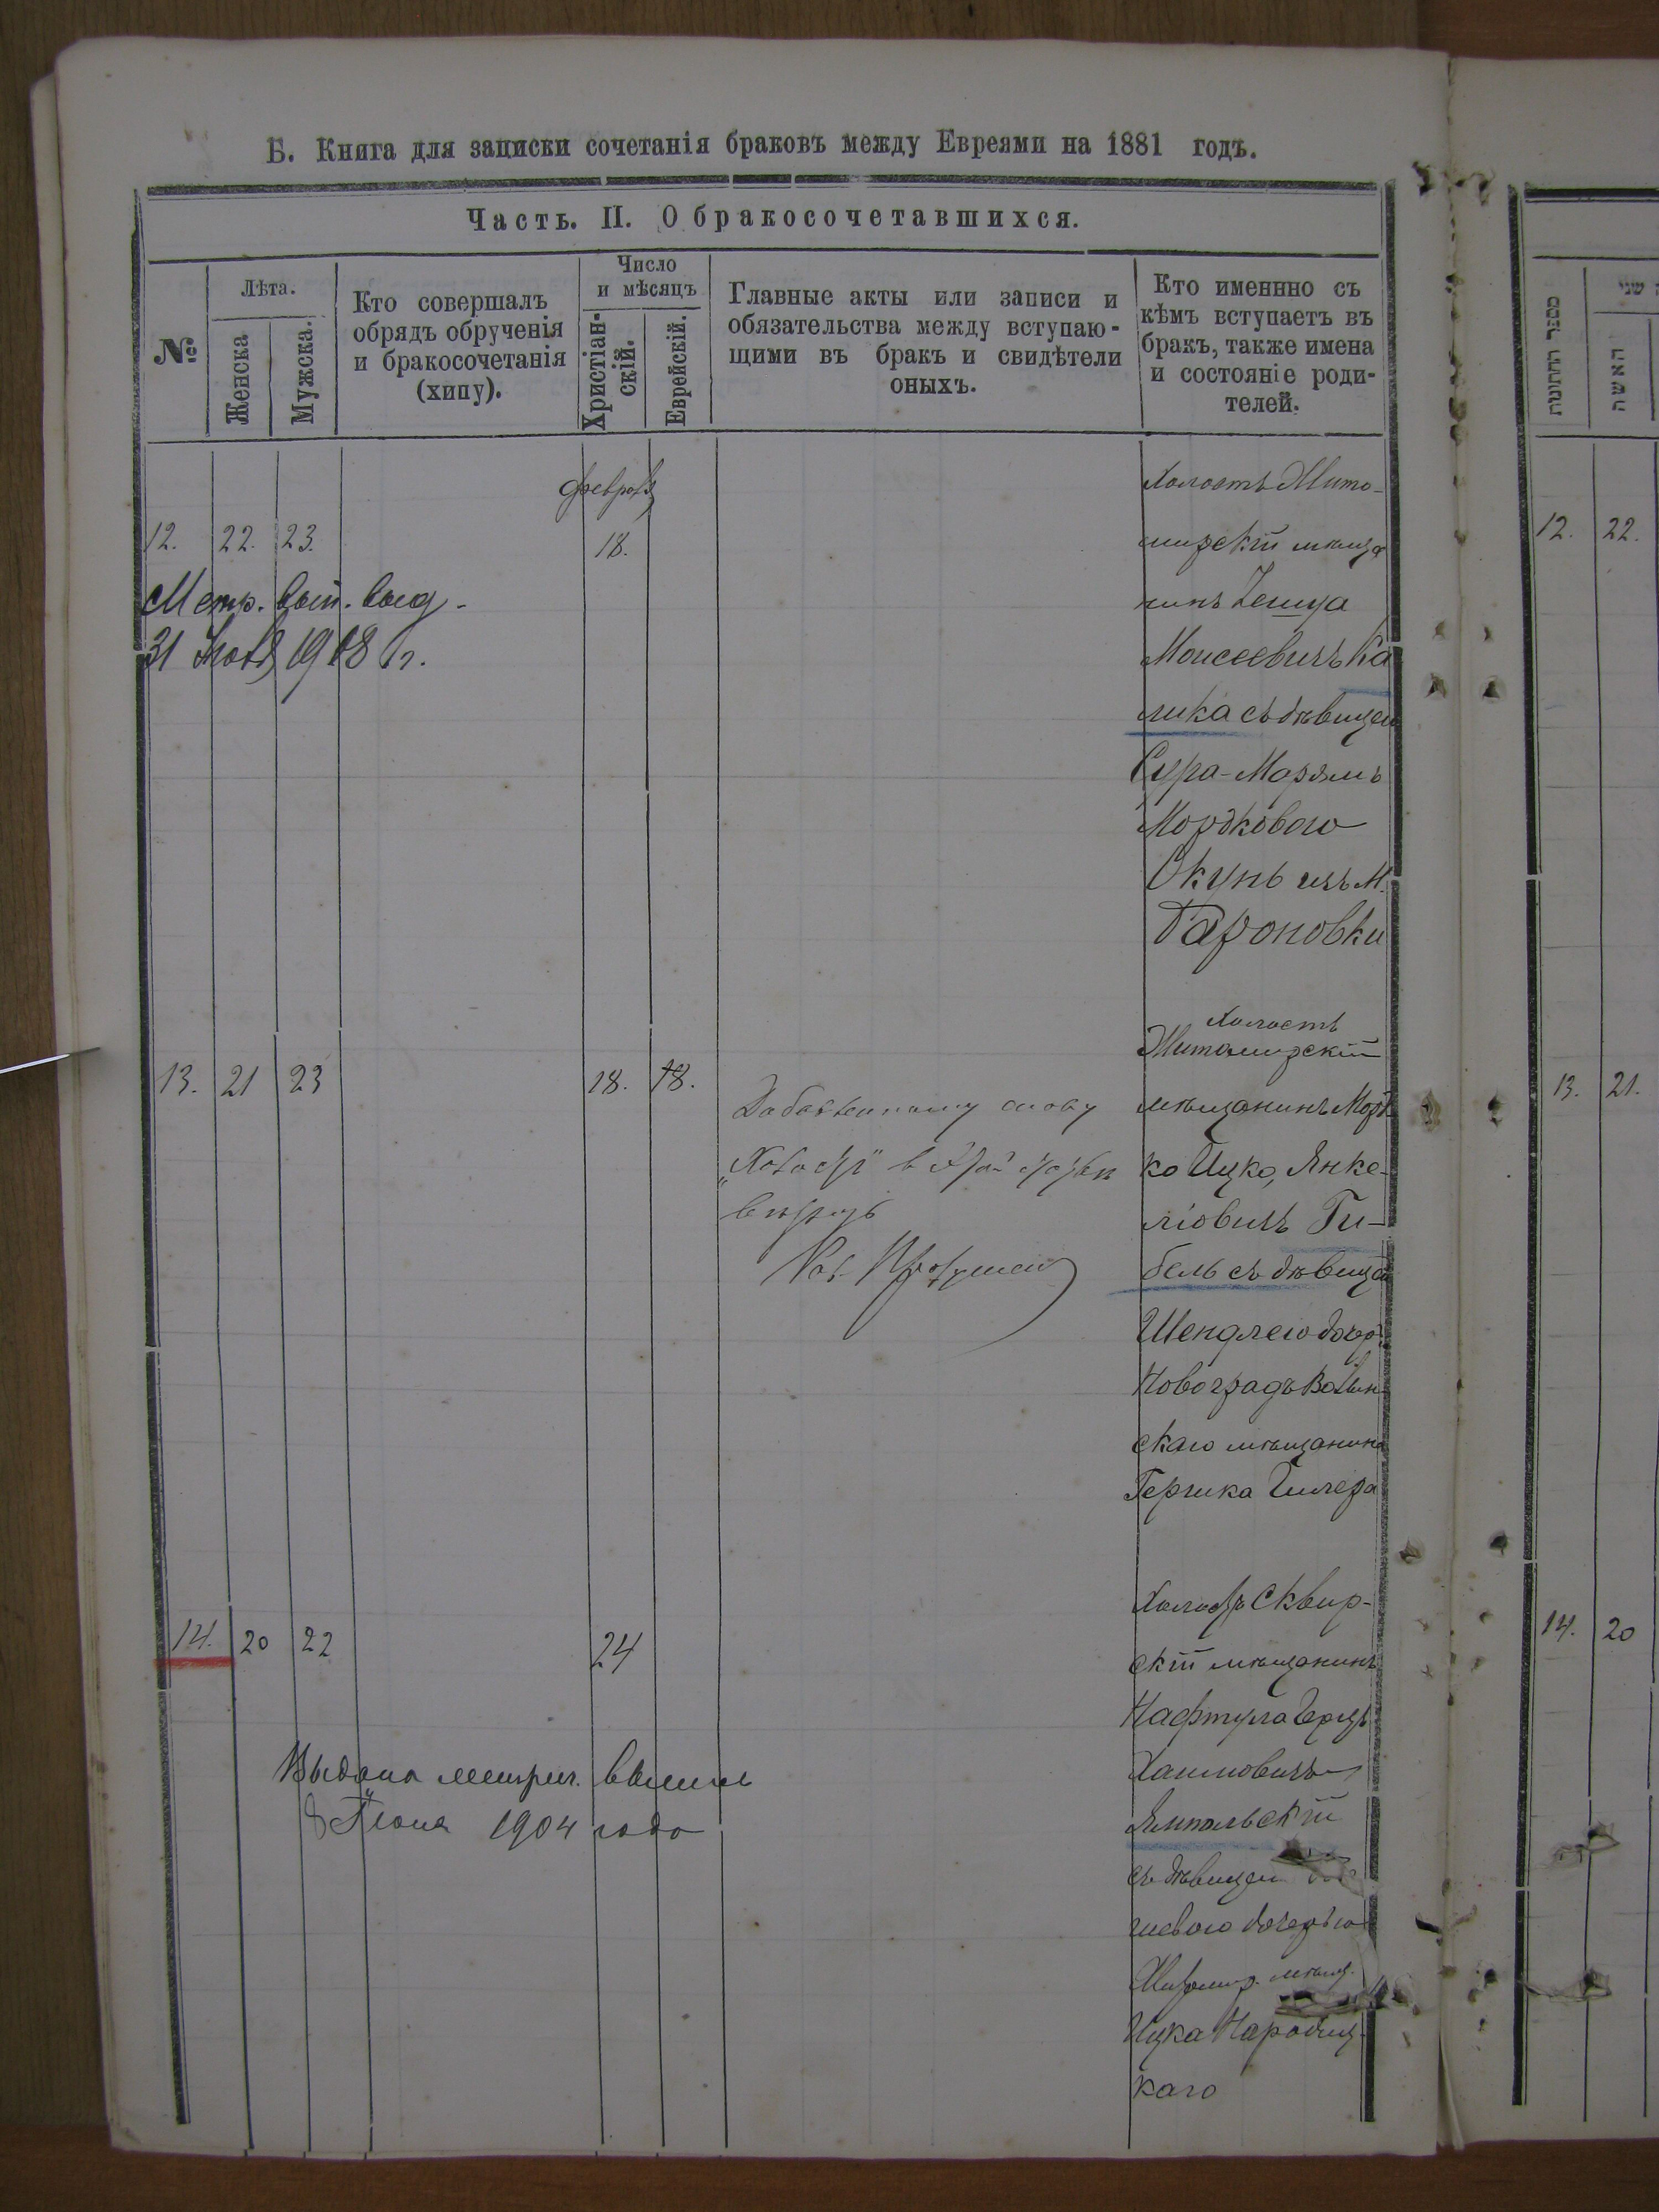 Б. Книга для записки сочетанія браковъ между Евреями на 1881 годъ.
Часть. II. О бракосочетавшихся.
№
Лѣта.
Женска
Мужска.
Кто совершалъ
обрядъ обрученія
и бракосочетанія
(хипу).
Число
и мѣсяцъ
Христіан-
скій.
Еврейскій.
Главные акты или записи и
обязательства между вступаю-
щими въ бракъ и свидѣтели
оныхъ.
Кто именнно съ
кѣмъ вступаетъ въ
бракъ, также имена
и состояніе роди-
телей.
12. 22. 23.
18.
Метр. вып. выд.
31 1918 г.
Холостъ Жито-
мирскій мѣща
нинъ
Моисеевичъ Ка
лика съ дѣвицей
Сура-Марямъ
Мордковою
Окунь изъ м.
Бароновки
13. 21 23
18. 18.
Холостъ
Житомирскій
мѣщанинъ Морд
ко Ицко, Янке-
ліовичъ Ги-
бель съ дѣвицей
Шендлею дочер.
Новоградъ Волын
скаго мѣщанина
Гершка
14. 20 22
24
Выдана метрич. выпись
8 Іюня 1904 года
Холостъ Сквир-
скій мѣщанинъ
Нафтула Герцъ
Хаимовичъ
Ямпольскій
съ дѣвицей
шевою дочерью
Житомир. мѣщ.
Ицка Народиц-
каго
מספר החתונות
האשה
שני
12. 22.
13. 21.
14. 20